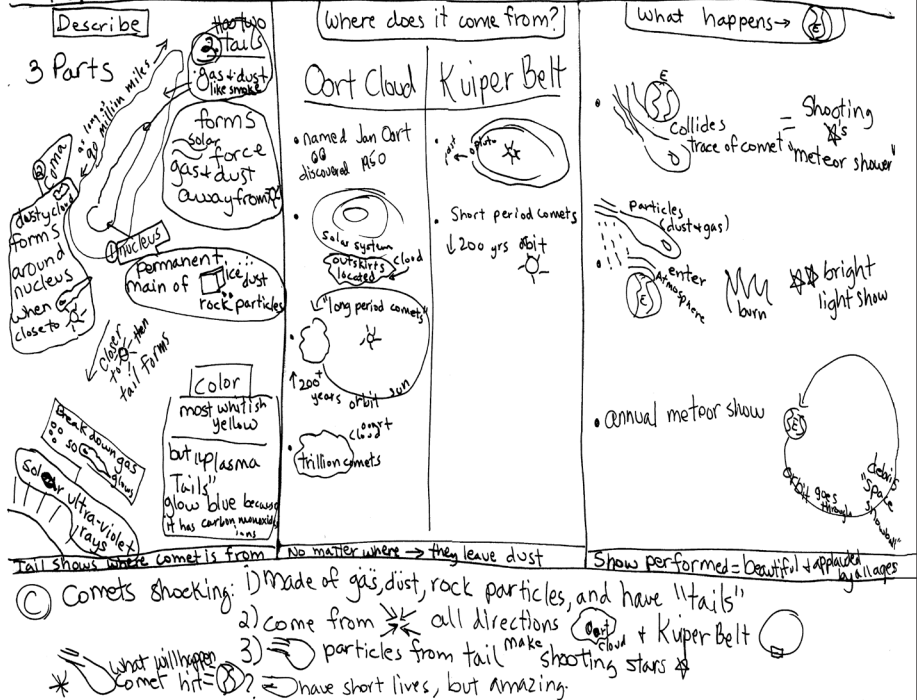 Describe
3 Parts
Has two
2 tails
gas + dust
like smoke
as long as
90 million miles
forms
solar
force
gas + dust
away from
2 coma
dusty cloud
forms
around
nucleus
when
close to
1 nucleus
Permanent,
main of ice, dust
rock particles
closer
to then
tail forms
Color
most whitish
yellow
but "plasma
Tails"
glow blue because
it has carbon monoxide
ions
Break down gas
so glows
Solar ultra-violet
rays
Tail shows where comet is from
Where does it come from?
Oort Cloud
• named Jan Oort
discovered 1950
•
Solar system
outskirts cloud
located
"long period comets"
•
↑ 200+
years orbit sun
oort
cloud
• trillion comets
Kuiper Belt
•
past pluto
• Short period comets
↓ 200 yrs orbit
No matter where → they leave dust
What happens → E
E
• collides = Shooting
trace of comet ☆'s
"meteor shower"
particles
(dust + gas)
• enter
Atmosphere
E
burn
☆☆ bright
light show
• annual meteor show
E
orbit goes
through
debris
"space
snowball"
Show performed = beautiful + applauded
by all ages
C Comets shocking: 1) Made of gas, dust, rock particles, and have "tails"
2) come from all directions Oort cloud + Kuiper Belt
3) particles from tail make shooting stars ☆
* what will happen
comet hit = E ?
have short lives, but amazing.